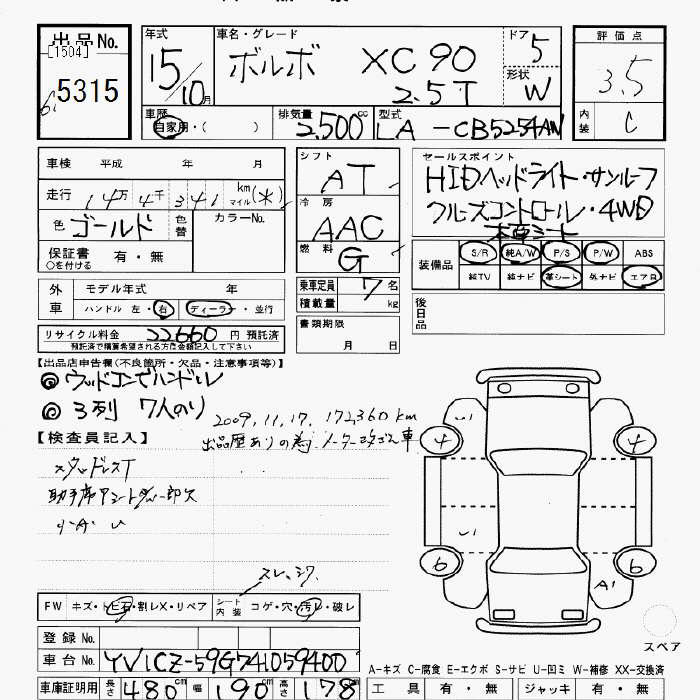 出品No.
[1504]
5315
年式
15/10月
車名・グレード
ボルボ XC90
2.5T
ドア
5
形状
W
評価点
3.5
内装
C
車歴
自家用・( )
排気量
2,500cc
型式
LA-CB5254AW
車検 平成 年 月
走行 14万 4千 341 km マイル (*)
色 ゴールド 色替
カラーNo.
保証書 有・無
○を付ける
シフト
AT
冷房
AAC
燃料
G
セールスポイント
HIDヘッドライト・サンルーフ
クルーズコントロール・4WD
本革シート
装備品
S/R 純A/W P/S P/W ABS
純TV 純ナビ 革シート 外ナビ エアロ
外車
モデル年式 年
ハンドル 左・右 ディーラー・並行
乗車定員 7名
積載量 kg
後日品
リサイクル料金 22660 円 預託済
預託済で積算希望される方は金額記入して下さい
書類期限
月 日
【出品店申告欄(不良箇所・欠品・注意事項等)】
◎ ウッドコンビハンドル
◎ 3列 7人のり
2009,11,17, 172,360km
出品歴ありの為メーター改ざん車
【検査員記入】
スタッドレスT
小A U
スレ、シワ
FW キズ・トビ石・割レX・リペア
シート内装 コゲ・穴・汚レ・破レ
登録No.
車台No. YV1CZ-59G741059400
車庫証明用 長さ 480cm 幅 190cm 高さ 178cm
4
4
6
6
A1
スペア
A-キズ C-腐食 E-エクボ S-サビ U-凹ミ W-補修 XX-交換済
工具 有・無 ジャッキ 有・無